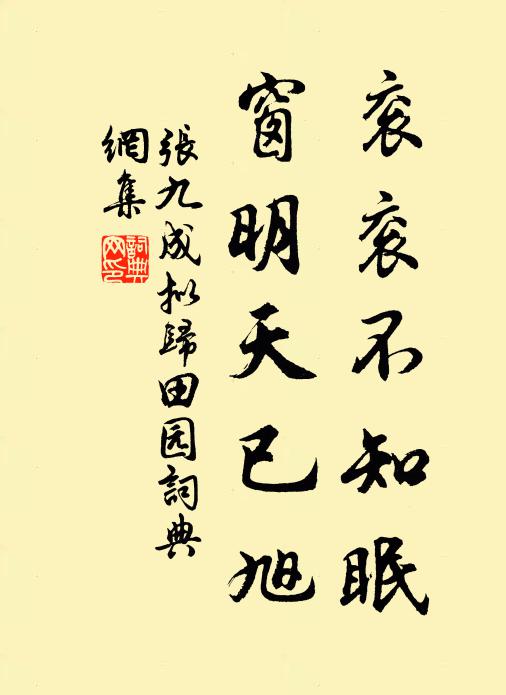 衮衮不知眠
窗明天已旭
張九成拟歸田园詞典
網集
詞典
网印